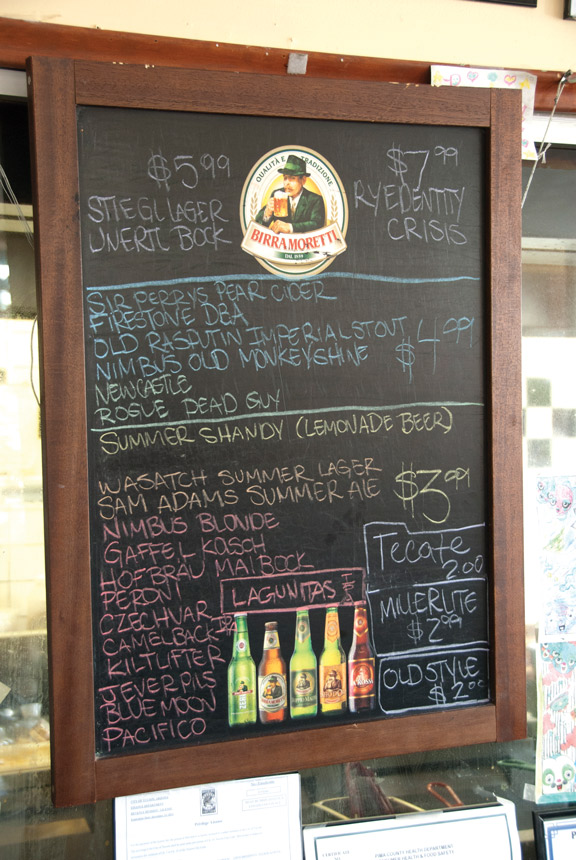 $5.99
STIEGL LAGER
UNERTL BOCK
QUALITÀ E TRADIZIONE
BIRRA MORETTI
DAL 1859
$7.99
RYEDENTITY
CRISIS
SIR PERRYS PEAR CIDER
FIRESTONE DBA
OLD RASPUTIN IMPERIAL STOUT
NIMBUS OLD MONKEYSHINE
$4.99
NEWCASTLE
ROGUE DEAD GUY
SUMMER SHANDY (LEMONADE BEER)
WASATCH SUMMER LAGER
SAM ADAMS SUMMER ALE
$3.99
NIMBUS BLONDE
GAFFEL KOLSCH
HOFBRAU MAIBOCK
PERONI
LAGUNITAS
CZECHVAR
CAMELBACK IPA
KILTLIFTER
JEVER PILS
BLUE MOON
PACIFICO
Tecate
2.00
MILLER LITE
$2.99
OLD STYLE
$2.00
PIMA COUNTY HEALTH DEPARTMENT